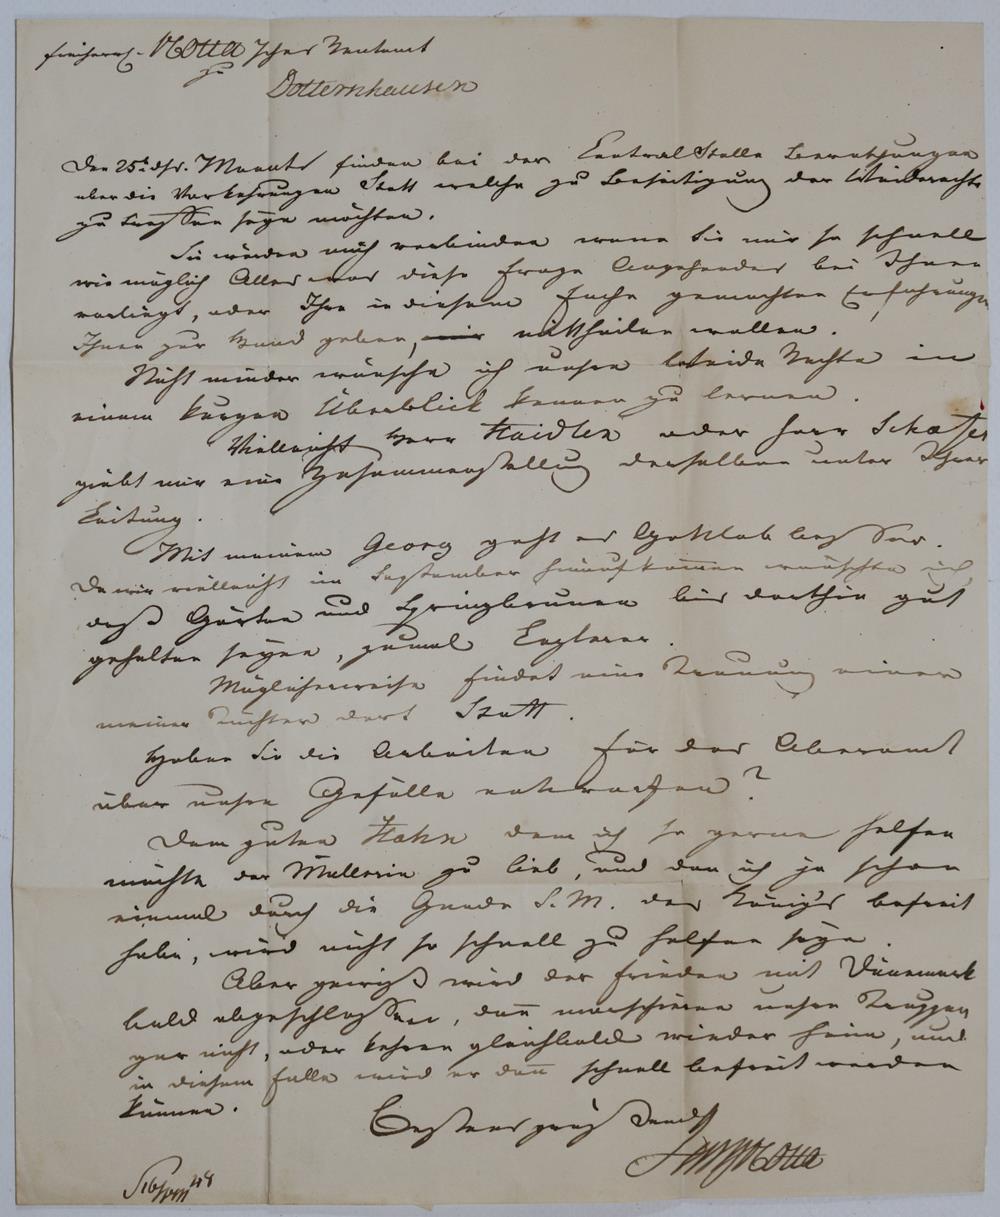 Freiherrl. v Cotta'sches Rentamt
zu
Dotternhausen
Den 25t dss. Monats finden bei der Central Stelle Berathungen
über die Vorkehrungen Statt welche zu Beseitigung der Weiderechte
zu treffen seyn möchten.
Sie würden mich verbinden wenn Sie mir so schnell
wie möglich Alles was diese Frage Angehendes bei Ihnen
vorliegt, oder Ihre in diesem Fache gemachten Erfahrungen
Ihnen zur Hand geben, mittheilen wollen.
Nicht minder wünsche ich unsre Weide Rechte in
einem kurzen Überblick kennen zu lernen.
Vielleicht Herr Haidlen oder Herr Schäffer
giebt mir eine Zusammenstellung derselben unter Ihrer
Leitung.
Mit meinem Georg geht es Gottlob besser.
Da wir vielleicht im September hinaufkommen wünschte ich,
daß Gärten und Springbrunnen bis dorthin gut
gehalten seyen, zumal
Möglicherweise findet eine Trauung einer
meiner Töchter dort Statt.
Haben Sie die Arbeiten für das Oberamt
über unsre Gefälle entworfen?
Dem guten Hahn dem ich so gerne helfen
möchte der Müllerin zu lieb, und den ich ja schon
einmal durch die Gnade S. M. des Königs befreit
habe, wird nicht so schnell zu helfen seyn.
Aber gewiß wird der Frieden mit Dänemark
bald abgeschlossen, dañ marschieren unsre Truppen
gar nicht, oder kehren gleichbald wieder heim, und
in diesem Falle wird er dañ schnell befreit werden
können.
Bestens grüßend
Cotta
48